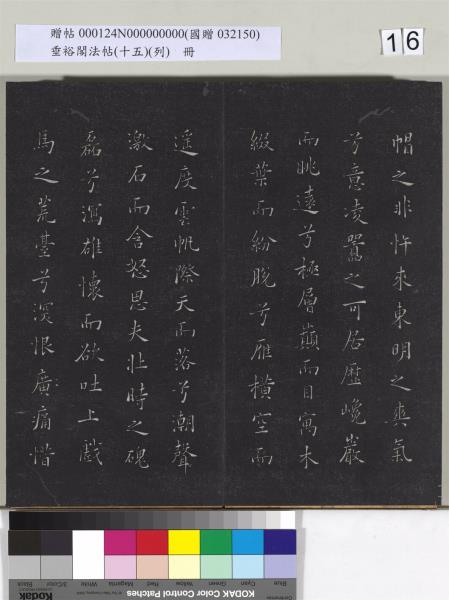 贈帖 000124N000000000(國贈 032150)
垂裕閣法帖(十五)(列) 冊
16
帽之非忤來東明之爽氣
兮意凌囂之可居歷巉巖
而眺遠兮極層巔而目寓木
綴葉而紛脫兮雁橫空而
遥度雲帆際天而落兮潮聲
激石而含怒思夫壯時之磈
磊兮瀉雄懷而欲吐上戲
馬之荒臺兮深恨廣痛惜
Blue
Cyan
Green
Yellow
Red
Magenta
White
3/Color
Black
KODAK Color Control Patches